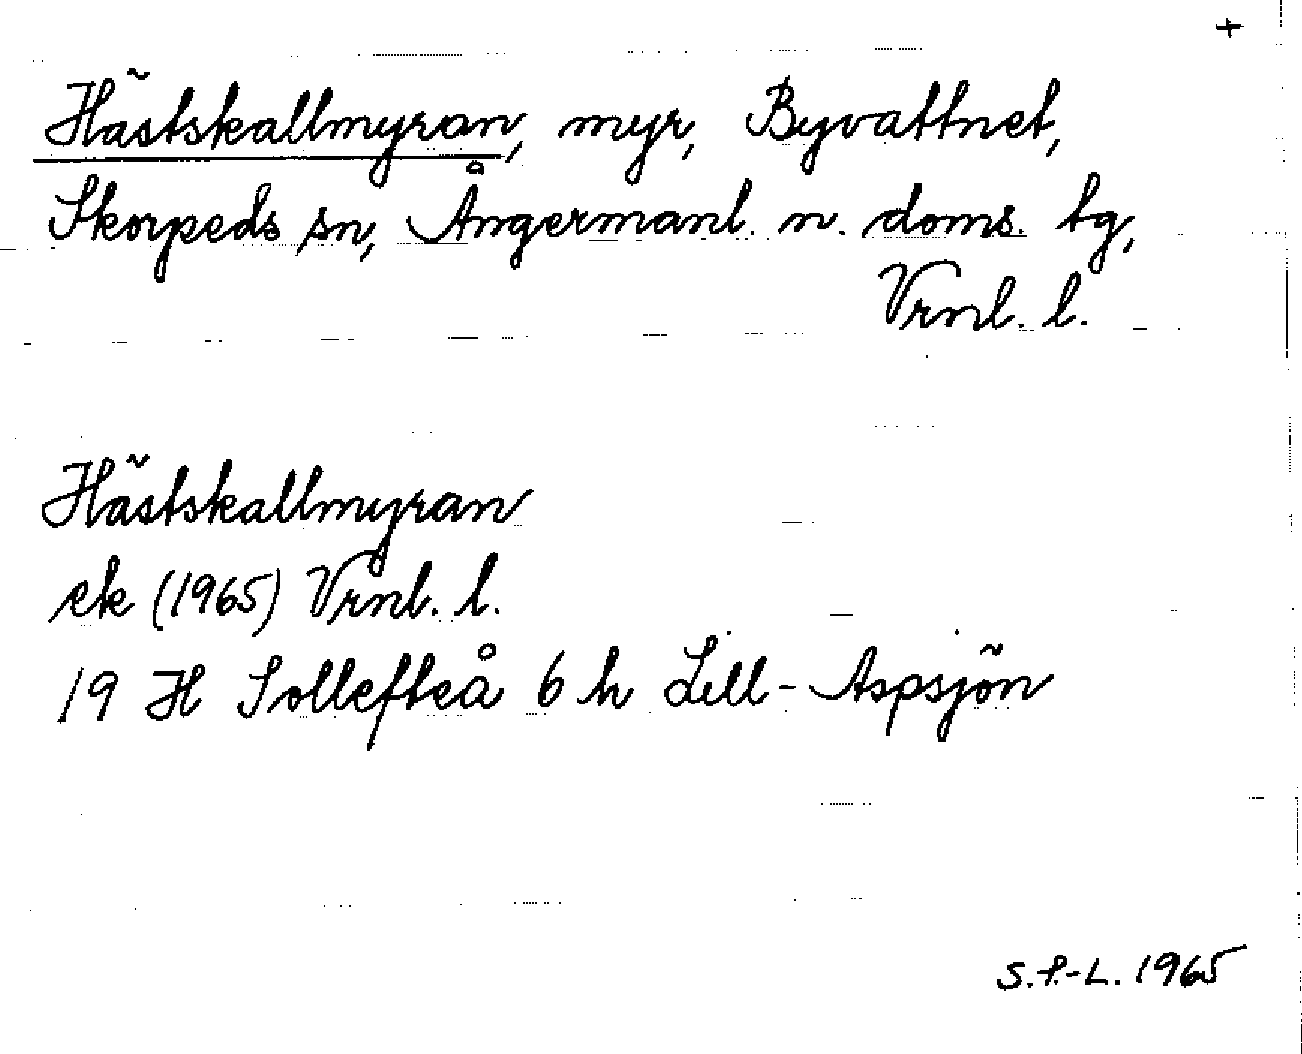 +
Hästskallmyran, myr, Byvattnet,
Skorpeds sn, Ångermanl. n. doms. tg,
Vrnl. l.
Hästskallmyran
ek (1965) Vrnl. l.
19 H Sollefteå 6 h Lill-Aspsjön
S.P.-L. 1965